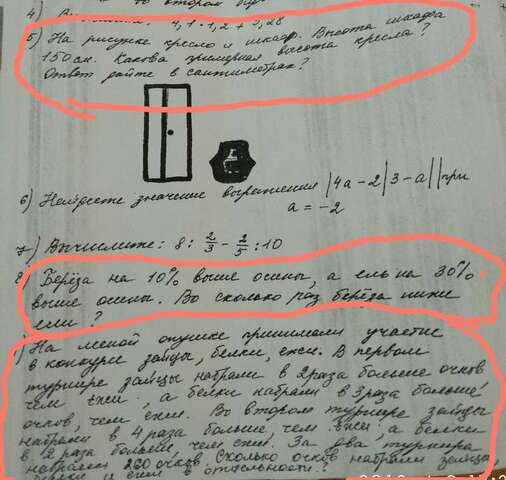 4) 4,1 · 1,2 +
5) На рисунке кресло и шкаф. Высота шкафа
150 см. Какова примерная высота кресла?
Ответ дайте в сантиметрах?
6) Найдите значение выражения |4a-2|3-a|| при
a = -2
7) Вычислите: 8 : 2/3 - 2/5 : 10
8) Берёза на 10% выше осины, а ель на 30%
выше осины. Во сколько раз берёза ниже
ели?
На лесной опушке принимали участие
в конкурсе зайцы, белки, ежи. В первом
турнире зайцы набрали в 2 раза больше очков
чем ежи, а белки набрали в 3 раза больше
очков, чем ежи. Во втором турнире зайцы
набрали в 4 раза больше, чем ежи а белки
в 2 раза больше, чем ежи. За два турнира
набрали 260 очков. Сколько очков набрали зайцы,
и ежи в отдельности?